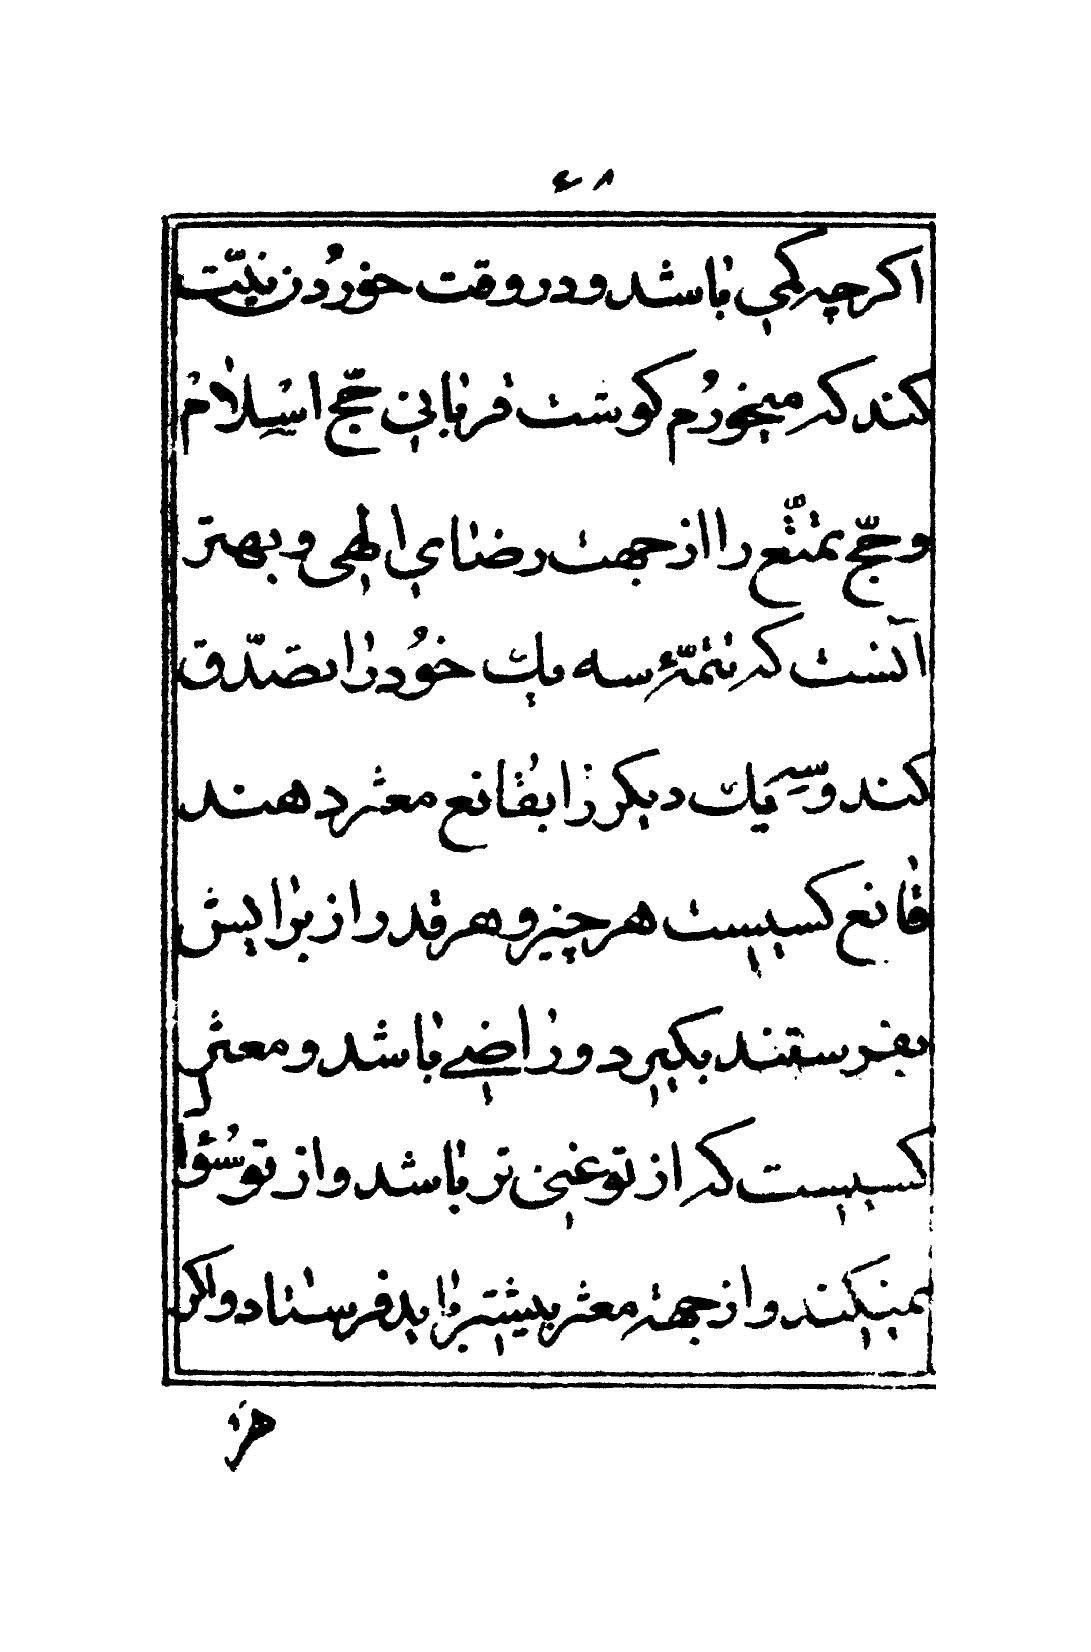 ۴۸
اکرچه کمی باشد و در وقت خوردن نیّت
کند که میخورم کوشت قربانی حجّ اسلام
و حجّ تمتّع را از جهت رضای الهی و بهتر
آنست که تتمّهٔ سه یك خود را تصدّق
کند و سه یك دیکر را بقانع معتر دهند
قانع کسیست هر چیز و هر قدر از برایش
بفرستند بکیرد و راضی باشد و معتر
کسیست که از تو غنی تر باشد و از تو سؤا
نمیکند و از جهة معتر بیشتر باید فرستاد و اکر